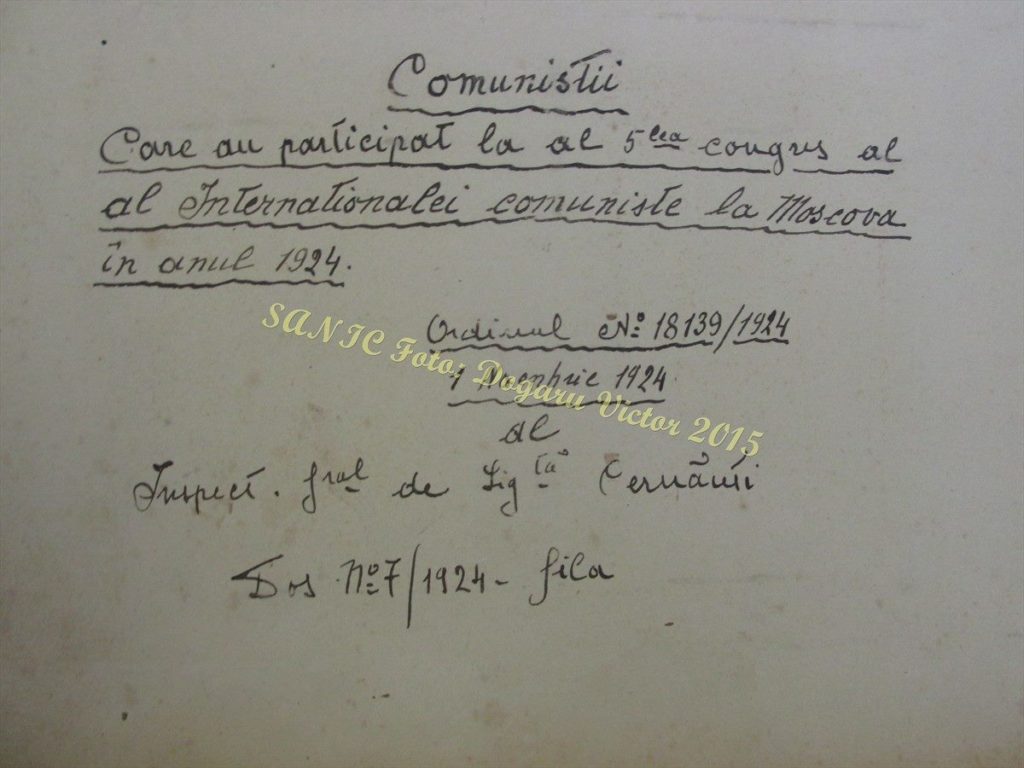 Comunistii
Care au participat la al 5lea congres al
al Internationalei comuniste la Moscova
în anul 1924.
Ordinul No 18139/1924
Noembrie 1924
al
Inspect. gral de Sigta Cernăuti
Dos No 7/1924 - fila
SANIC Foto: Dogaru Victor 2015